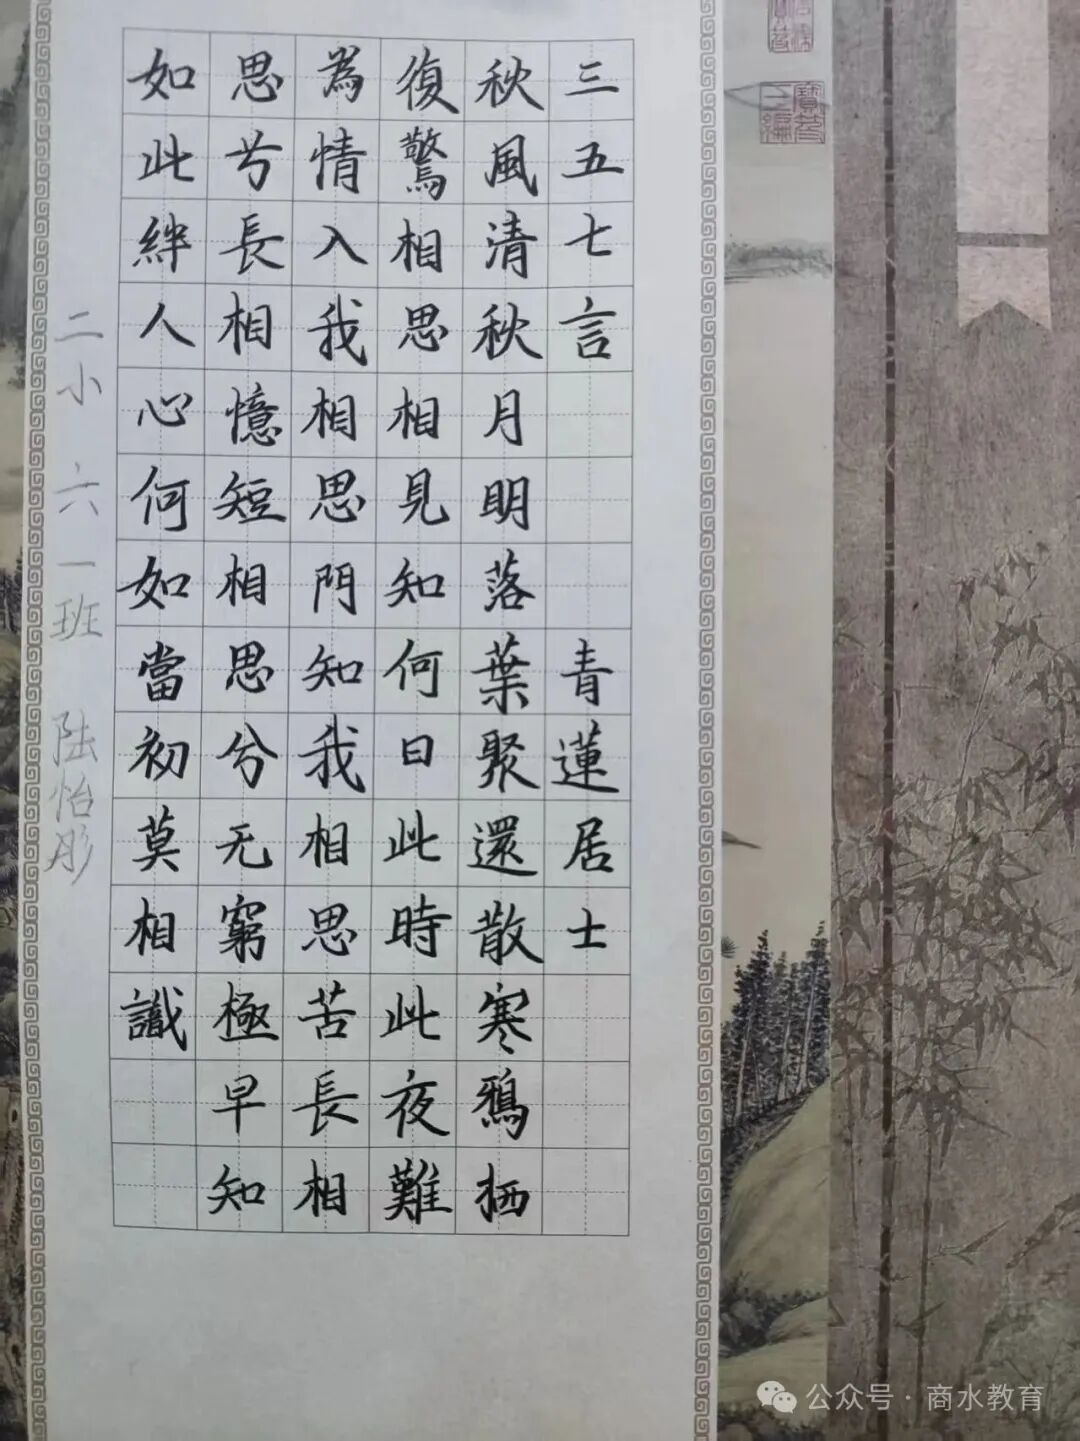 三五七言 青蓮居士
秋風清秋月明落葉聚還散寒鴉栖
復驚相思相見知何日此時此夜難
為情入我相思門知我相思苦長相
思兮長相憶短相思兮无窮極早知
如此絆人心何如當初莫相識
二小 六一班 陆怡彤
公众号·商水教育